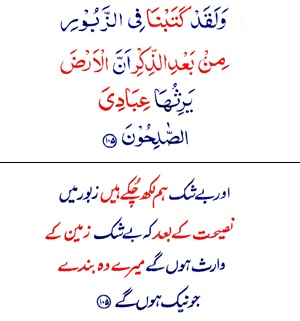 وَلَقَدْ كَتَبْنَا فِی الزَّبُوْرِ
مِنْۢ بَعْدِ الذِّكْرِ اَنَّ الْاَرْضَ
یَرِثُهَا عِبَادِیَ
الصّٰلِحُوْنَ ۱۰۵
اور بے شک ہم لکھ چُکے ہیں زبور میں
نصیحت کے بعد کہ بے شک زمین کے
وارث ہوں گے میرے وہ بندے
جو نیک ہوں گے ۱۰۵